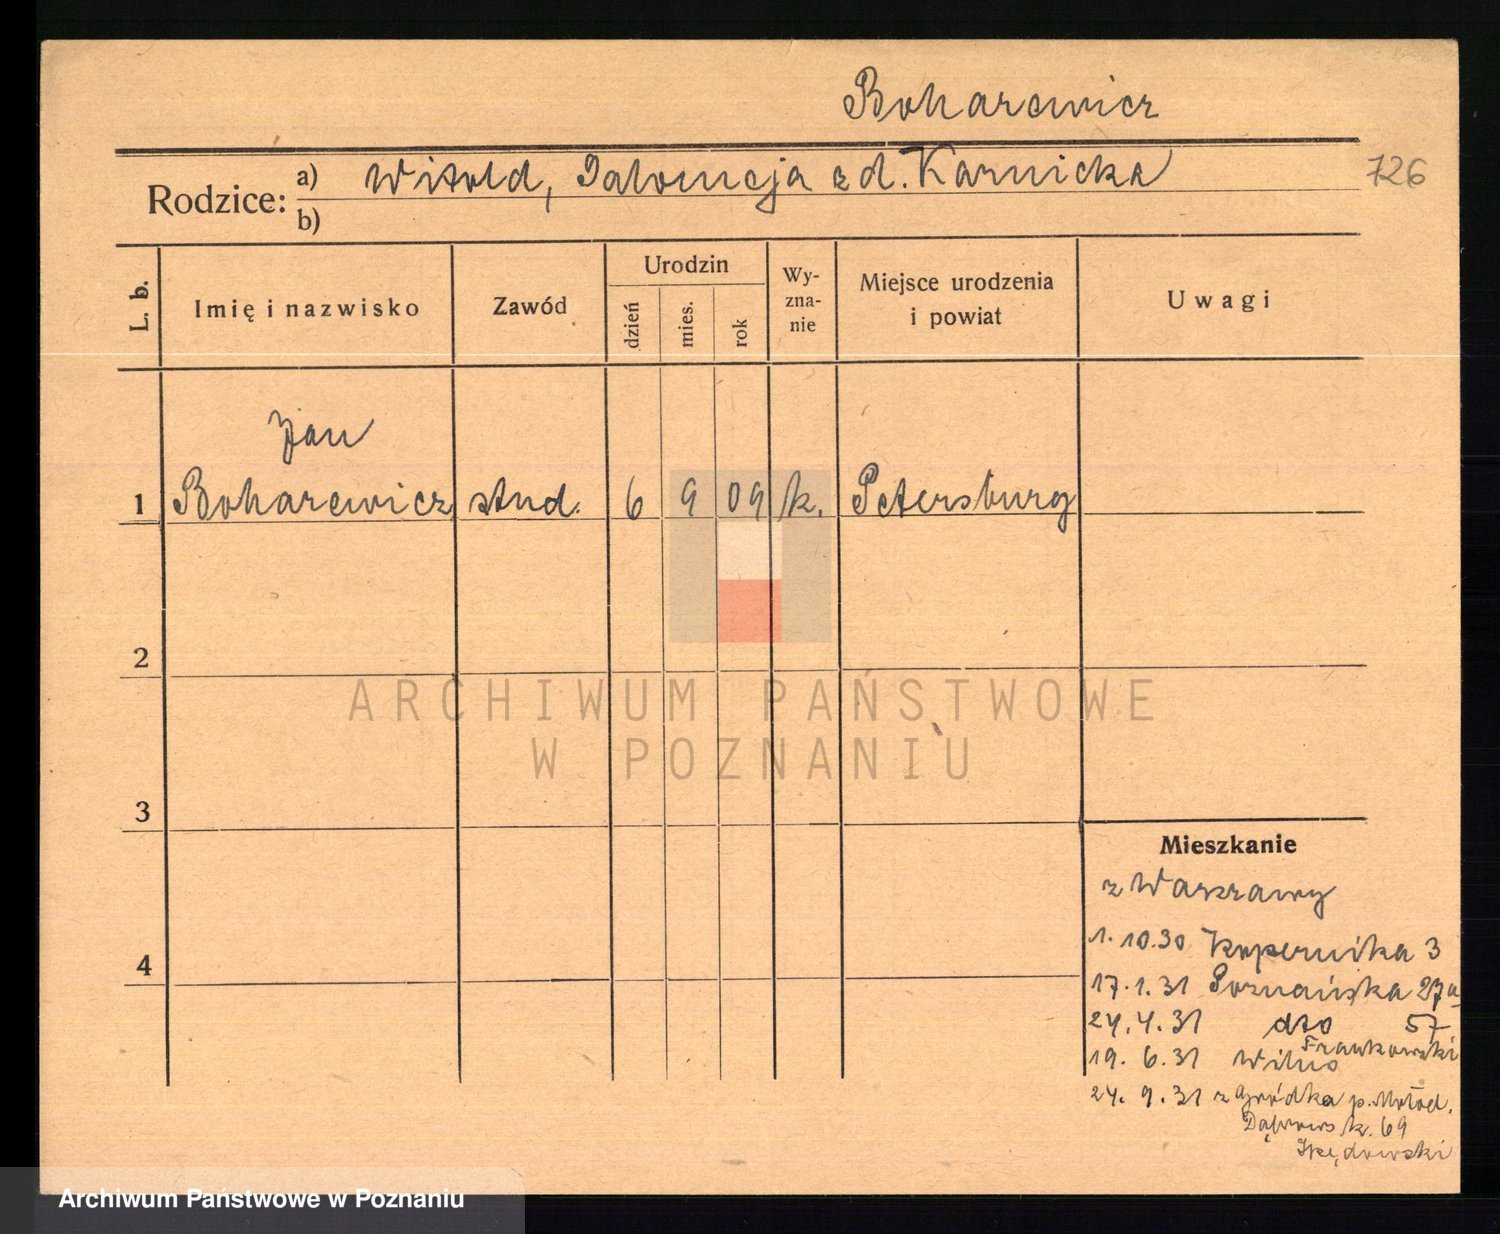 Boharewicz
Rodzice: a) Witold, Salomeja z d. Karnicka
726
b)
L. b.
Imię i nazwisko
Zawód
Urodzin
dzień
mies.
rok
Wy-
zna-
nie
Miejsce urodzenia
i powiat
Uwagi
Jan
1 Boharewicz stud. 6 9 09 k. Petersburg
2
ARCHIWUM PAŃSTWOWE
W POZNANIU
3
Mieszkanie
z Warszawy
1.10.30 Kopernika 3
4
17.1.31 Poznańska 27a
24.4.31 dto 57
Frankowski
19.6.31 Wilno
24.9.31 z Gródka p. Mołod.
Dąbrowsk. 69
Archiwum Państwowe w Poznaniu